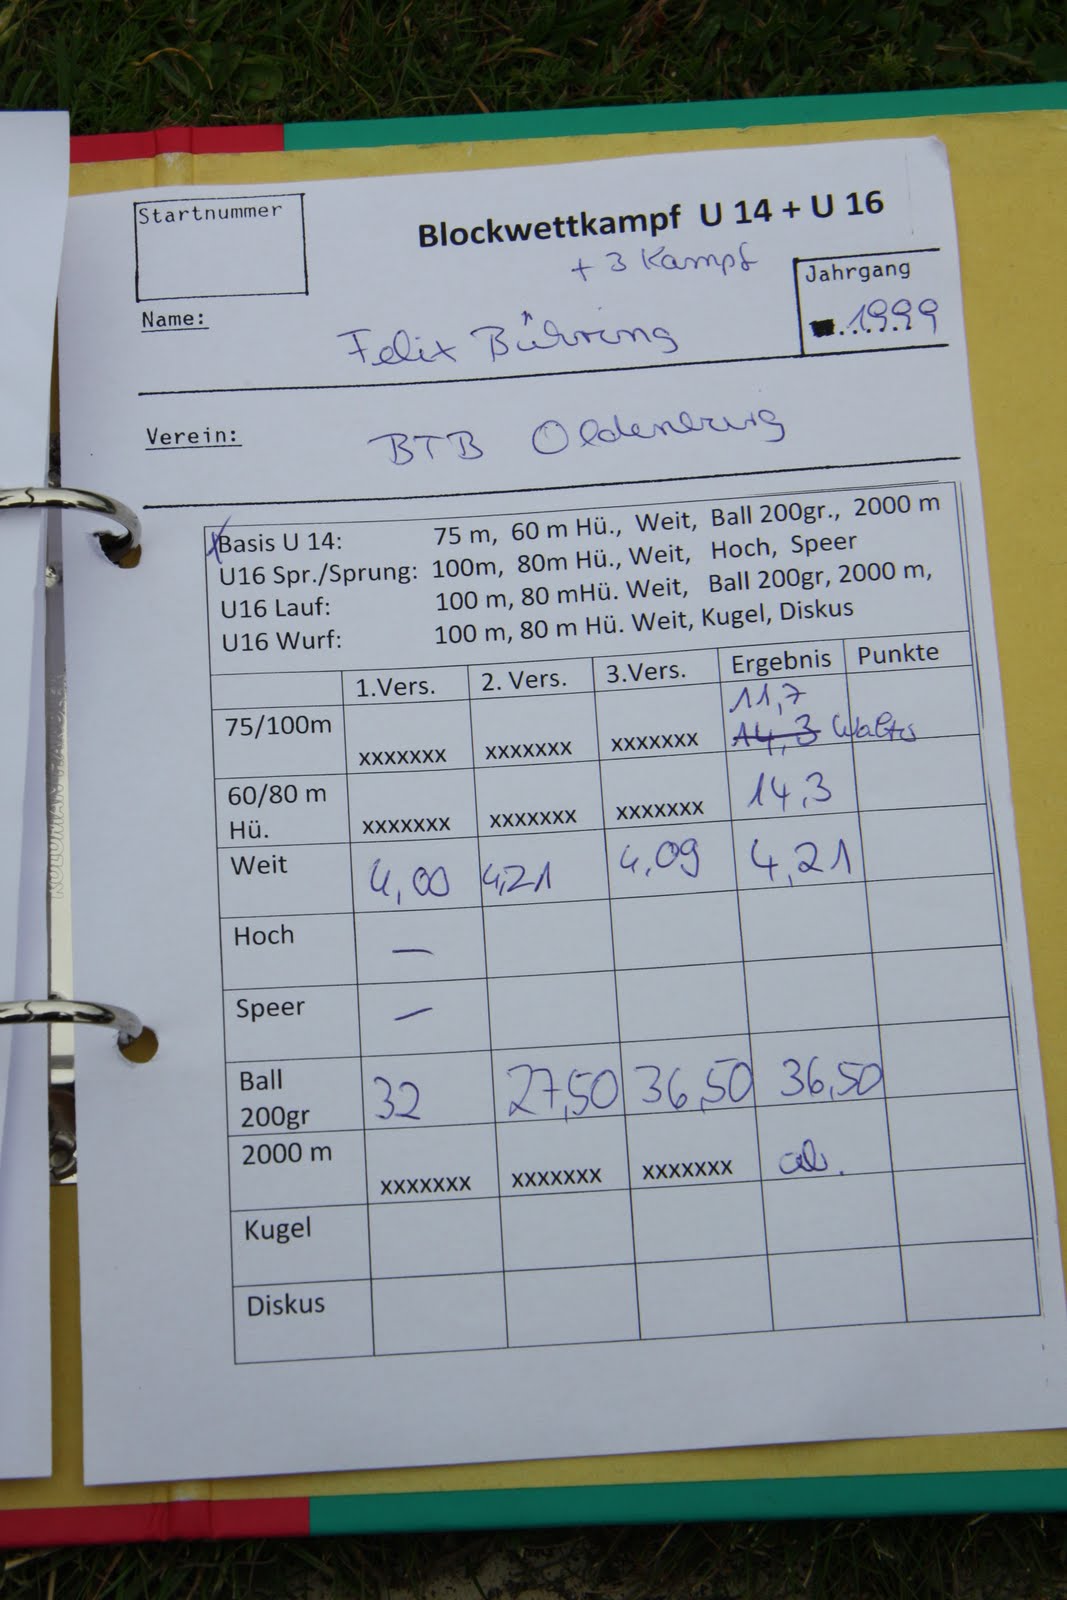 Startnummer
Blockwettkampf U 14 + U 16
+ 3 Kampf
Jahrgang
1999
Name:
Felix Bühring
Verein:
BTB Oldenburg
x Basis U 14: 75 m, 60 m Hü., Weit, Ball 200gr., 2000 m
U16 Spr./Sprung: 100m, 80m Hü., Weit, Hoch, Speer
U16 Lauf: 100 m, 80 mHü. Weit, Ball 200gr, 2000 m,
U16 Wurf: 100 m, 80 m Hü. Weit, Kugel, Diskus
1.Vers. 2. Vers. 3.Vers. Ergebnis Punkte
11,7
75/100m xxxxxxx xxxxxxx xxxxxxx 14,3
60/80 m
Hü. xxxxxxx xxxxxxx xxxxxxx 14,3
Weit 4,00 4,21 4,09 4,21
Hoch —
Speer —
Ball
200gr 32 27,50 36,50 36,50
2000 m xxxxxxx xxxxxxx xxxxxxx ab.
Kugel
Diskus